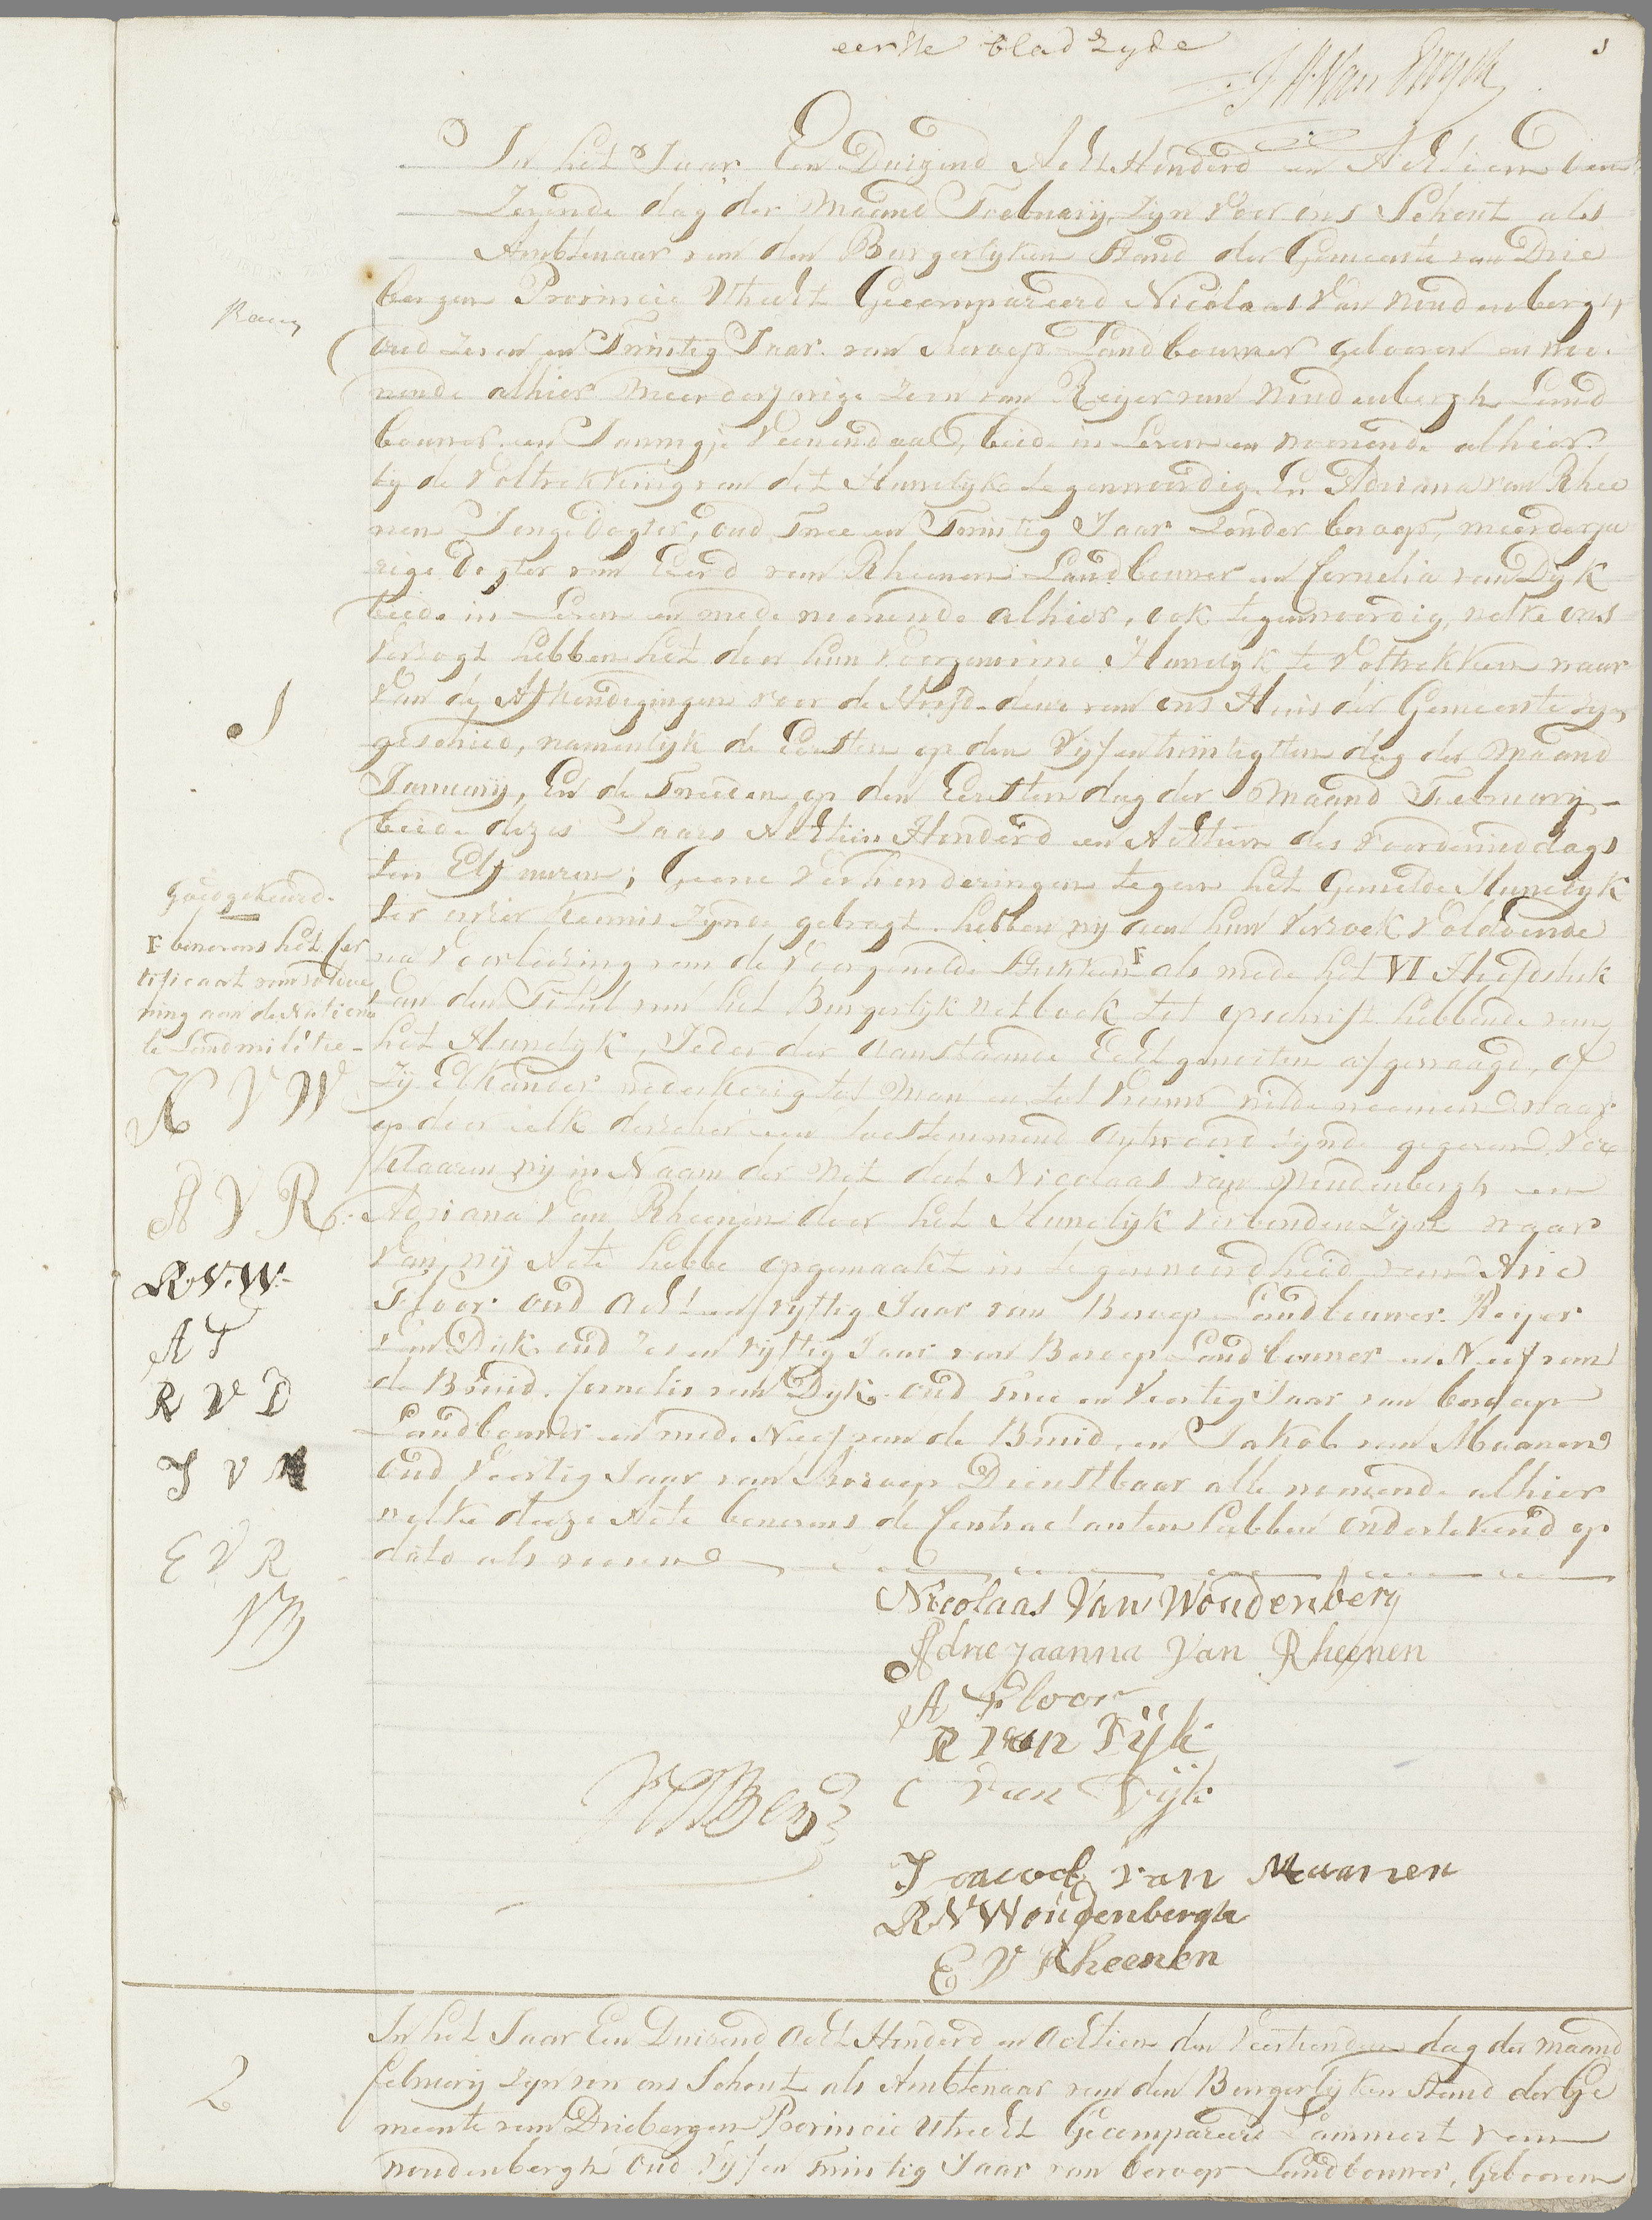 eerste bladzyde
1
In het Jaar Een Duizend Acht Honderd en Achtien den
Zevende dag der Maand Feebruarij, Zyn voor ons Schout als
Ambtenaar van den Burgerlyken Stand der Gemeente van Drie
bergen Provincie Utrecht Gecompareerd Nicolaas Van Woudenbergh,
oud Zeven en Twintig Jaar van Beroep Landbouwer gebooren en woo
nende alhier Meerderjarige Zoon van Reijer van Woudenbergh Land
bouwer en Jannigje Veenendaal, beide in Leven en woonende alhier
bij de Voltrekking van dit Huwelyk tegenwoordig. En Adriana van Rhee
nen Jongedogter, oud Twee en Twintig Jaar zonder beroep, meerderja
rige Dogter van Evert van Rheenen Landbouwer en Cornelia van Dyk
beide in Leven en mede woonende alhier, ook tegenwoordig, welke ons
verzogt hebben het door hun voorgenome Huwelyk te Voltrekken waar
van de Afkondigingen voor de Hoofd-deur van ons Huis der Gemeente zyn
geschied, namentlyk de Eersten op den Vyfentwintigsten dag der Maand
January, En de Tweeden op den Eersten dag der Maand Feebruarij
beide dezes Jaars Achtien Honderd en Achtien des voordemiddags
ten Elf uuren; Geene Verhinderingen tegen het Gemelde Huwelyk
ter onzer Kennis zynde gebragt hebben wy aan hun Verzoek Voldoende
na Voorleezing van de Voorgemelde Stukken F als mede het VI Hoofdstuk
van den Titul van het Burgerlyk Wetboek tot opschrift hebbende van
het Huwelyk, Ieder der aanstaande Echtgenooten afgevraagd, of
Zij Elkander wederkerig tot Man en tot Vrouw wilde neemen waar
op door ielk derzelver een toestemmend Antwoord zynde gegeven, Ver
klaaren wy in Naam der Wet dat Nicolaas van Woudenbergh en
Adriana Van Rheenen door het Huwelyk verbonden Zyn waar
van wy Acte hebbe opgemaakt in tegenwoordheid van Arie
Floor oud Acht en vyftig Jaar van Beroep Landbouwer. Reyer
van Dyk oud Zes en vyftig Jaar van Beroep Landbouwer en Neef van
de Bruid. Cornelis van Dyk oud Twee en Veertig Jaar van beroep
Landbouwer en mede Neef van de Bruid, en Jakob van Maanen
oud Veertig Jaar van Beroep Dienstbaar alle woonende alhier
welke deeze Acte benevens de Contractanten hebben ondertekend op
dato als vooren
1
Goedgekeurd
F benevens het Cer
tificaat van voldoe
ning aan de Nationa
le Landmilitie
N V W
A V R
R.V.W.
A F
R V D
J V M
E V R
Nicolaas Van Woudenberg
Adriejaanna Van Rheenen
A Floor
R van Dyk
C van Dyk
Jaacob van Maanen
R V Woudenbergh
E V Rheenen
2
In het Jaar Een Duisend Acht Honderd en Achtien den Veertienden dag der maand
february zyn voor ons Schout als Ambtenaar van den Burgerlyken Stand der Ge
meente van Driebergen Provincie Utrecht Gecompareerd Lammert van
Woudenbergh Oud Vyf en Twintig Jaar van beroep Landbouwer, Gebooren